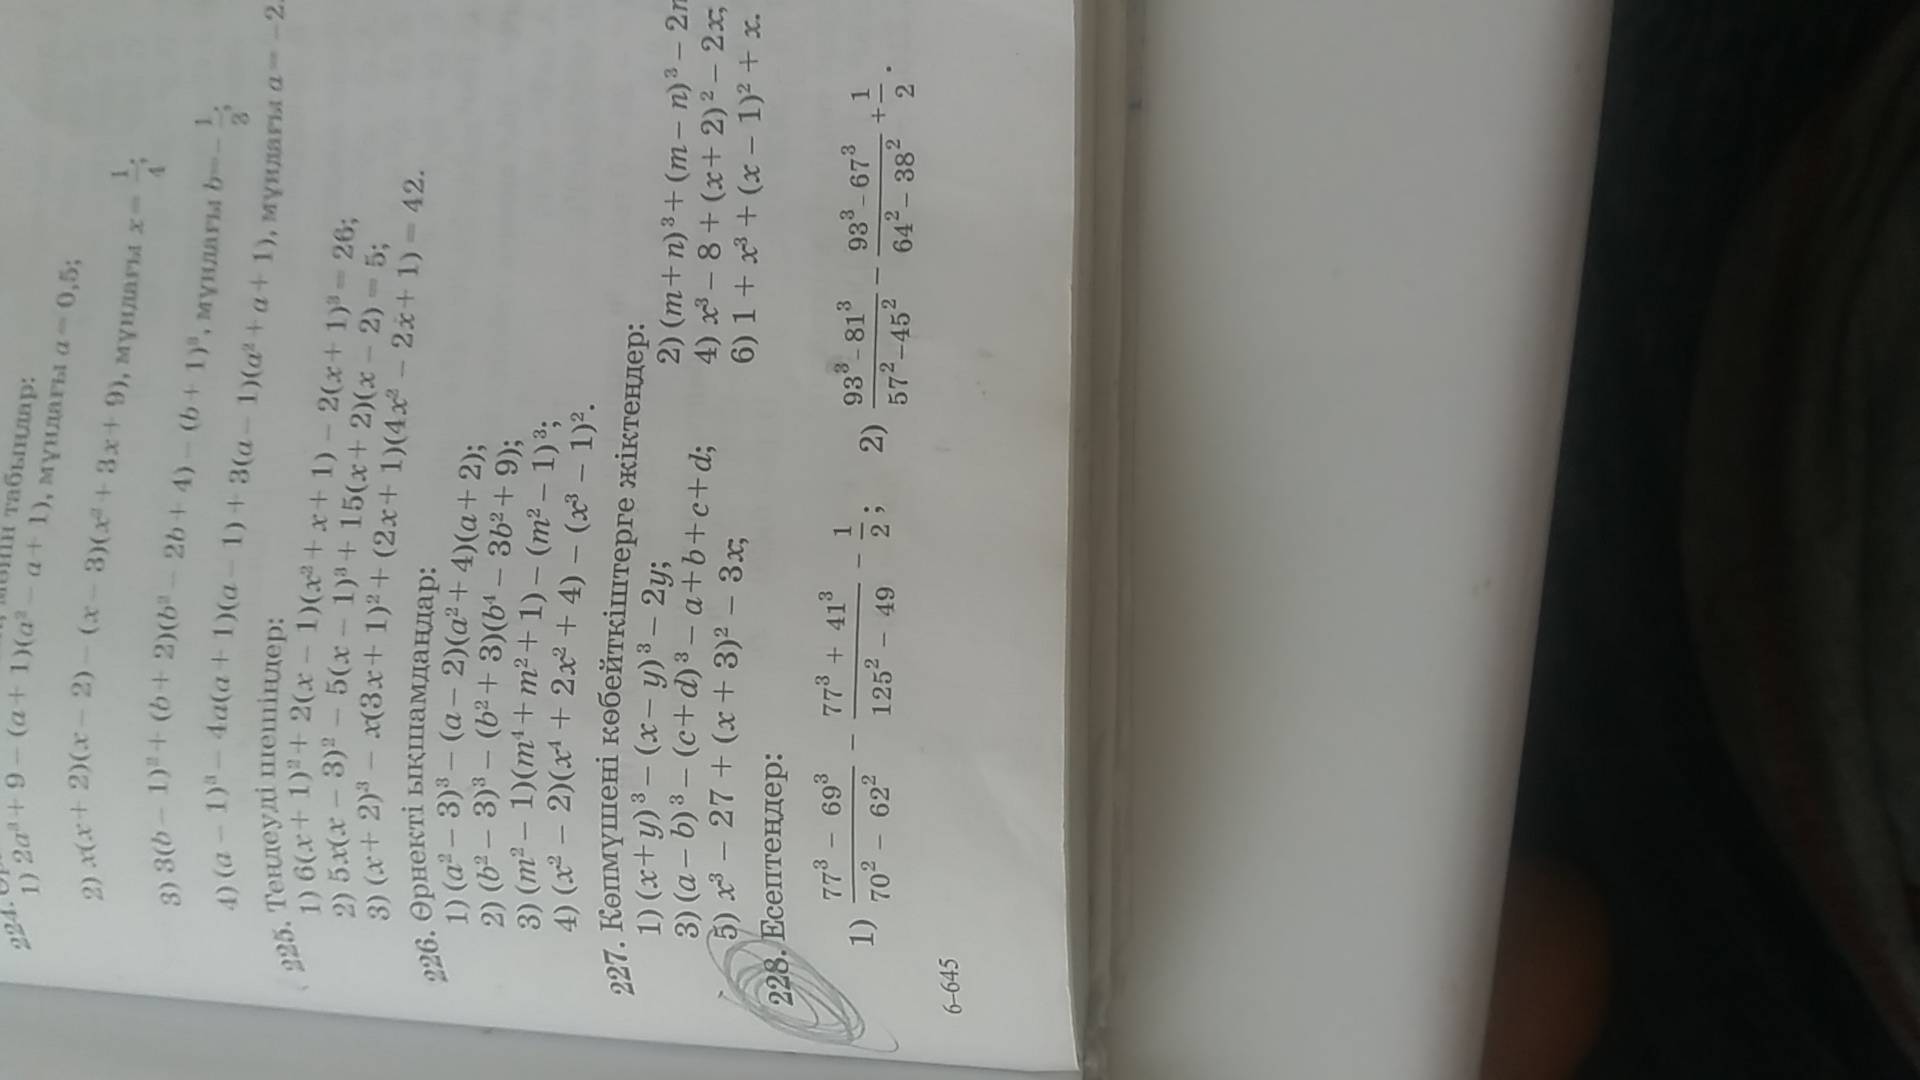 224.
мәнін табыңдар:
1) 2a³ + 9 − (a + 1)(a² − a + 1), мұндағы a = 0,5;
2) x(x + 2)(x − 2) − (x − 3)(x² + 3x + 9), мұндағы x = 1/4;
3) 3(b − 1)² + (b + 2)(b² − 2b + 4) − (b + 1)³, мұндағы b = −1/3;
4) (a − 1)³ − 4a(a + 1)(a − 1) + 3(a − 1)(a² + a + 1), мұндағы a = −2.
225. Теңдеуді шешіңдер:
1) 6(x + 1)² + 2(x − 1)(x² + x + 1) − 2(x + 1)³ = 26;
2) 5x(x − 3)² − 5(x − 1)³ + 15(x + 2)(x − 2) = 5;
3) (x + 2)³ − x(3x + 1)² + (2x + 1)(4x² − 2x + 1) = 42.
226. Өрнекті ықшамдаңдар:
1) (a² − 3)³ − (a − 2)(a² + 4)(a + 2);
2) (b² − 3)³ − (b² + 3)(b⁴ − 3b² + 9);
3) (m² − 1)(m⁴ + m² + 1) − (m² − 1)³;
4) (x² − 2)(x⁴ + 2x² + 4) − (x³ − 1)².
227. Көпмүшені көбейткіштерге жіктеңдер:
1) (x + y)³ − (x − y)³ − 2y; 2) (m + n)³ + (m − n)³ − 2m
3) (a − b)³ − (c + d)³ − a + b + c + d; 4) x³ − 8 + (x + 2)² − 2x;
5) x³ − 27 + (x + 3)² − 3x; 6) 1 + x³ + (x − 1)² + x.
228. Есептеңдер:
1) (77³ − 69³)/(70² − 62²) − (77³ + 41³)/(125² − 49) − 1/2; 2) (93³ − 81³)/(57² − 45²) − (93³ − 67³)/(64² − 38²) + 1/2.
6–645